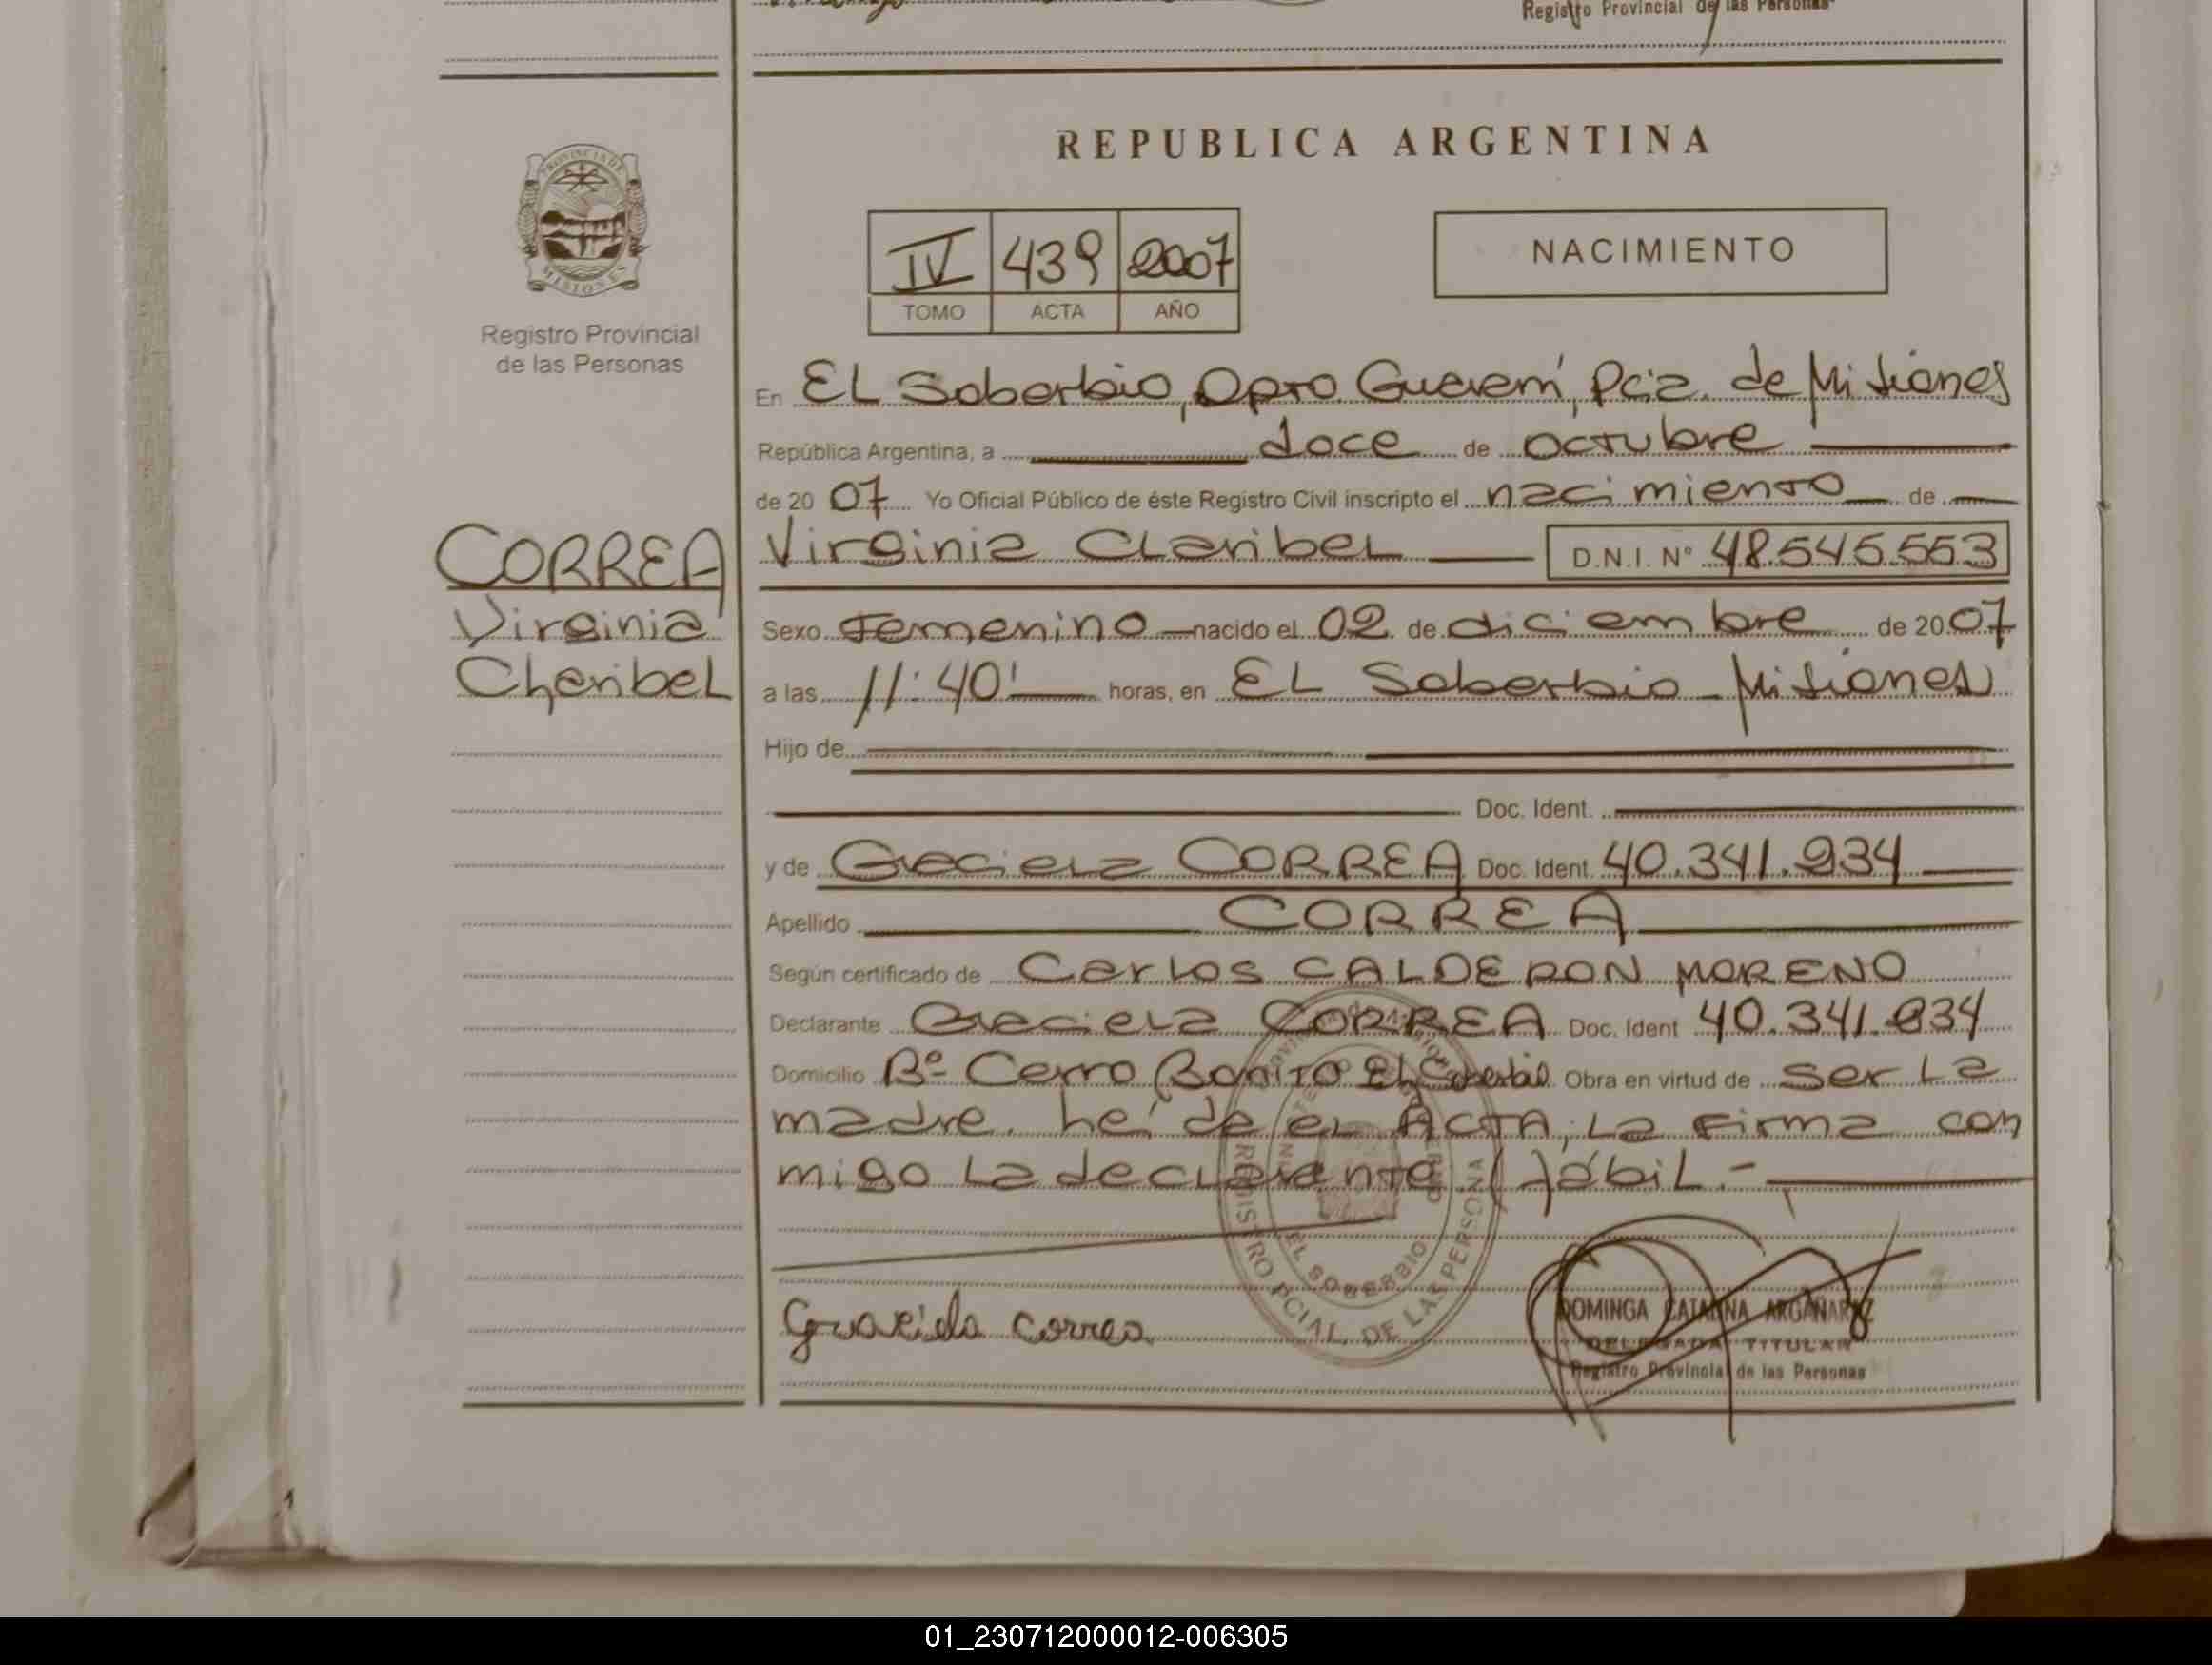 Registro Provincial de las Personas
REPUBLICA ARGENTINA
PROVINCIA DE
MISIONES
Registro Provincial
de las Personas
IV 439 2007
TOMO ACTA AÑO
NACIMIENTO
En EL Soberbio, Dpto Guaraní, Pcia. de Misiones
República Argentina, a doce de octubre
de 2007 Yo Oficial Público de éste Registro Civil inscripto el nacimiento de
CORREA
Virginia
Charibel
Virginia CLaribeL D.N.I. Nº 48.545.553
Sexo Femenino nacido el 02 de diciembre de 2007
a las 11:40' horas, en EL Soberbio - Misiones
Hijo de
Doc. Ident.
y de Graciela CORREA Doc. Ident. 40.341.934
Apellido CORREA
Según certificado de Carlos CALDERON MORENO
Declarante Graciela CORREA Doc. Ident 40.341.934
Domicilio Bº Cerro Bonito El Soberbio Obra en virtud de ser La
madre. heí de el ACTA, La Firma con
migo La declarante / hábiL.-
REGISTRO PCIAL. DE LAS PERSONAS
EL SOBERBIO
Graciela correa
DOMINGA CATALINA ARGAÑARAZ
DELEGADA TITULAR
Registro Provincial de las Personas
01_230712000012-006305